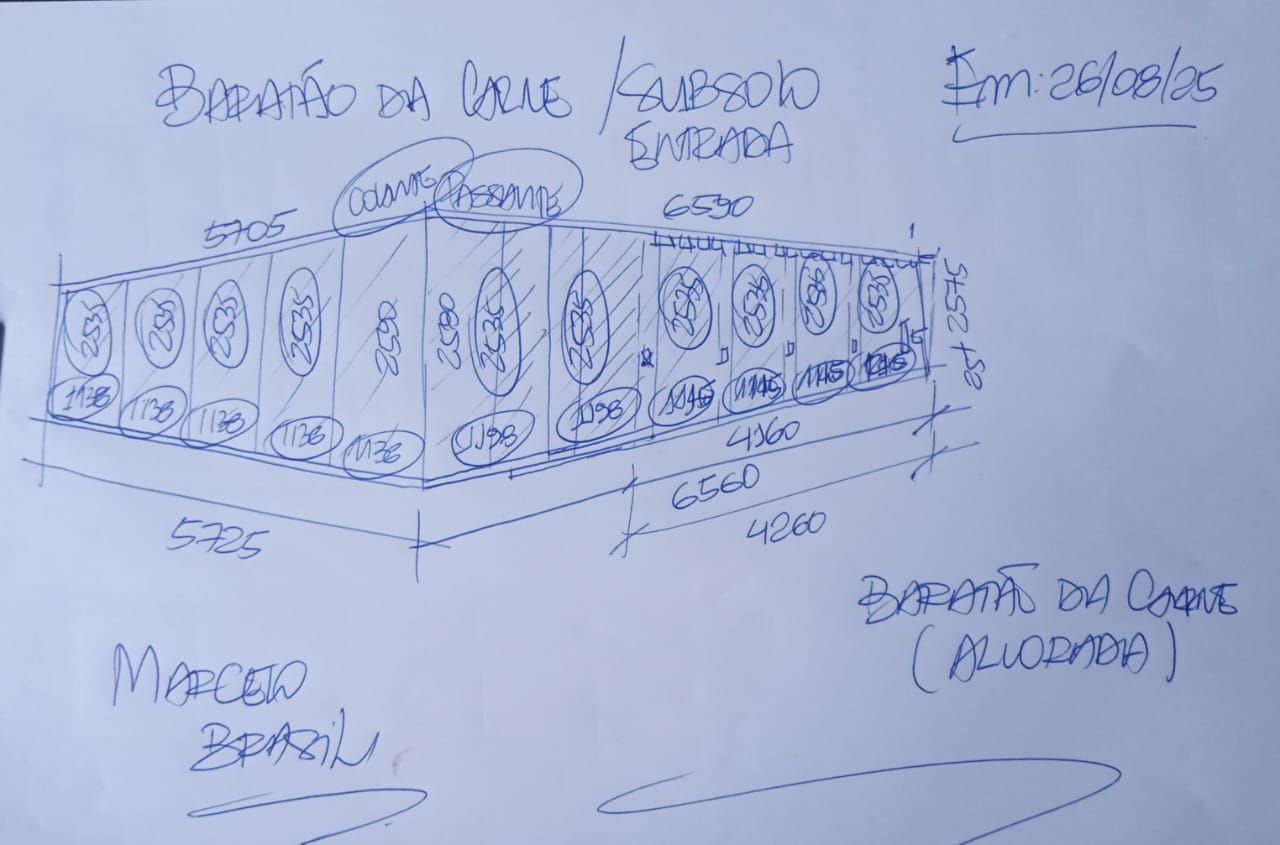 BARATÃO DA CARNE / SUBSOLO
ENTRADA
Em: 26/08/25
COLANTE PASSANTE
5705
6590
2535 2535 2535 2535 2590 2590 2535 2535 2535 2535 2535 2535
1138 1138 1138 1138 1138 1198 1198 1145 1145 1145
25+2575
4160
6560
4260
5725
BARATÃO DA CARNE
(ALVORADA)
MARCELO
BRASIL